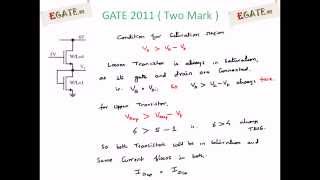 EGATE.in
GATE 2011 ( Two Mark )
EGATE.in
6V
Condition for Saturation region
V_D > V_G - V_T
5V
W/L=4
Lower Transistor is always in Saturation,
as its gate and drain are Connected.
W/L=1
ie. V_D = V_G, So V_D > V_G - V_T always true.
for Upper Transistor,
V_Dup > V_Gup - V_T
6 > 5 - 1 ie 6 > 4 always
TRUE.
So both Transistor will be in Saturation and
Same Current flows in both.
I_Dup = I_Dlow